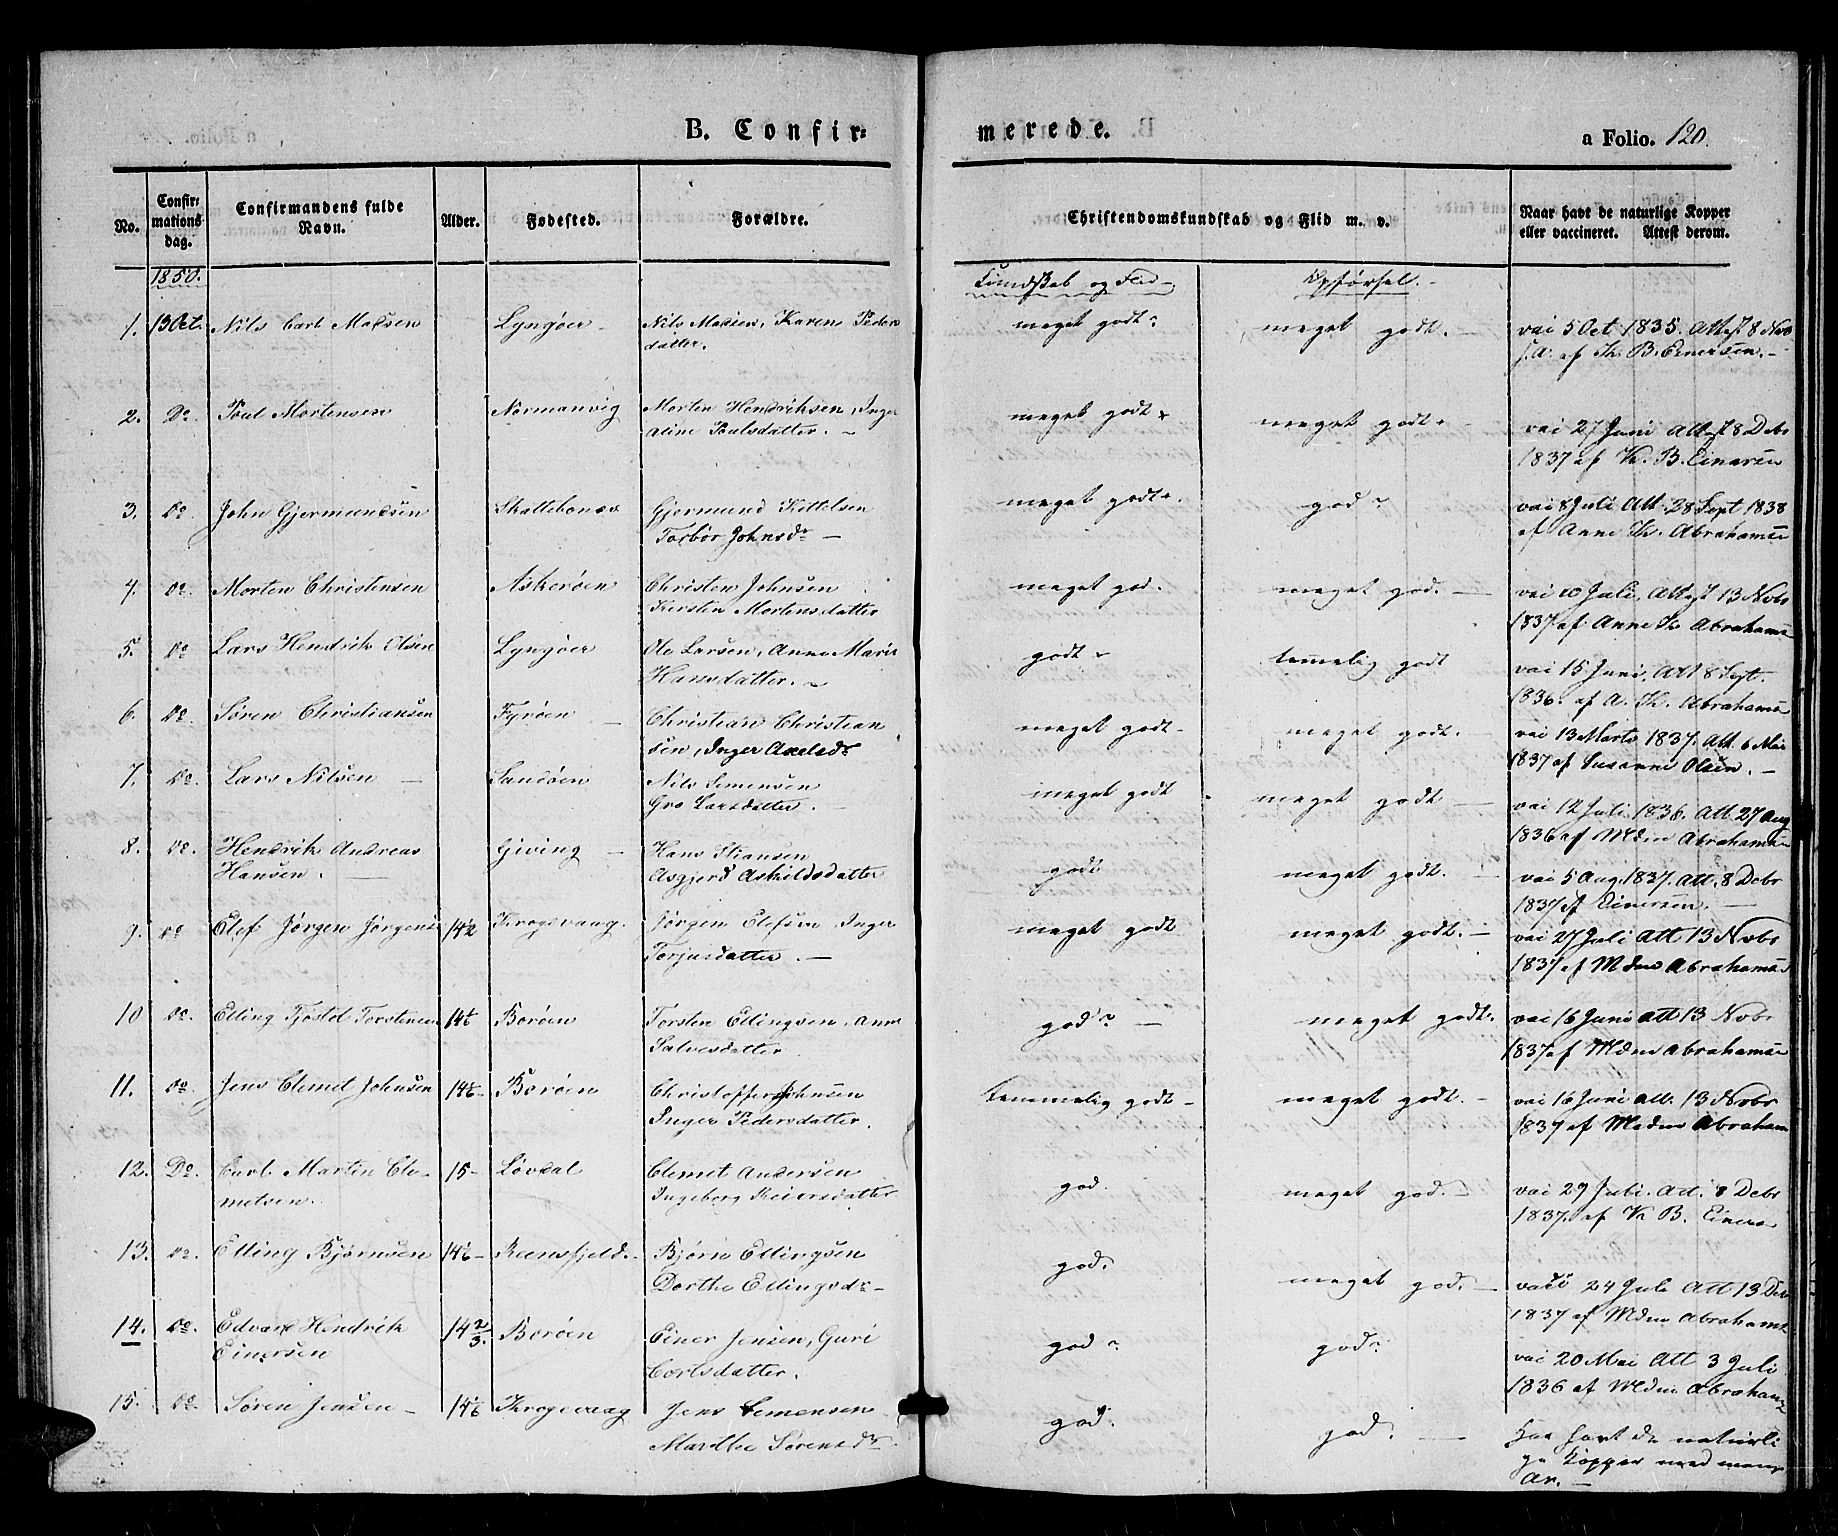 B. Confir=
merede.
a Folio. 120.
No.
Confir=
mations
dag.
Confirmandens fulde
Navn.
Alder.
Fødested.
Forældre.
Christendomskundskab og Flid m. v.
Naar havt de naturlige Kopper
eller vaccineret. Attest derom.
1850.
Kundskab og Flid
Opførsel.
1. 13 Oct. Nils Carl Madsen Lyngøer Nils Madsen, Karen Peders
datter.
meget godt meget godt. vai 5 Oct 1835. Attest 8 Nov
s. A. af K. B. Einersen.
2. Do Poul Mortensen Normanvig Morten Hendriksen, Inger
aline Poulsdatter.
meget godt meget godt vai 27 Juni Attest 8 Debr
1837 af K. B. Einarsen
3. do John Gjermundsen Gjermund Kittelsen
Torbør Johnsdr
meget godt god vai 8 Juli Att. 28 Sept 1838
af Anne K. Abrahamse
4. do Morten Christensen Askerøen Christen Johnsen
Kirstin Mortensdatter
meget god. meget god. vai 10 Juli, Attest 13 Novbr
1837 af Anne K Abrahams
5. do Lars Hendrik Olsen Lyngøer Ole Larsen, Anne Marie
Hansdatter.
godt temmelig godt vai 15 Juni. Att 8 Sept.
1836. af A. K. Abrahamse
6. do Søren Christiansen Fyrøen Christian Christian
sen, Inger Axelsdr
meget godt meget godt. vai 13 Marts 1837. Att. 6 Mai
1837 af Susanne Olsen.
7. do Lars Nilsen Sandøen Nils Simensen
Gro Larsdatter.
meget godt meget godt vai 12 Juli 1836. Att 27 Aug
1836 af Mdm Abrahams
8. do. Hendrik Andreas
Hansen.
Giving Hans Stiansen
Asgjerd Askildsdatter
godt meget godt. vai 5 Aug. 1837. Att. 8 Debr
1837 af Einersen.
9. do Elef Jørgen Jørgens 14½ Krogevaag. Jørgen Elefsen Inger
Torjusdatter.
meget godt meget godt. vai 27 Juli Att 13 Novbr
1837 af Mdm Abrahams
10 do. Elling Tjøstel Torstensen Borøen Torsten Ellingsen, Anne
Salvesdatter
god meget godt. vai 16 Juni att 13 Novbr
1837 af Mdm Abrahams
11. do. Jens Clemet Johnsen Borøen Christoffer Johnsen
Inger Pedersdatter.
temmelig godt meget godt. vai 16 Juni att. 13 Novbr
1837 af Mdm Abraham
12. Do Carl Martin Cle-
metsen.
15 Løvdal Clemet Andersen
Ingeborg Reiersdatter
god. meget god. vai 29 Juli. Att. 8 Debr
1837. af K B. Einers
13. do. Elling Bjørnsen Reensfjeld. Bjørn Ellingsen
Dorthe Ellingsdr
god. meget god. vai 24 Juli Att 13 De
1837 af Mdm Abrahams
14. do. Edvard Hendrik
Einersen
14 2/3. Borøen Einer Jensen, Guri
Carlsdatter.
god god vai 20 Mai Att 3 Juli
1836 af Mdm Abraham
15. do. Søren Jensen Krogevaag Jens Semensen
Marthe Sørensdr
god. god. har havt de naturli
ge Kopper med mang
Ar.